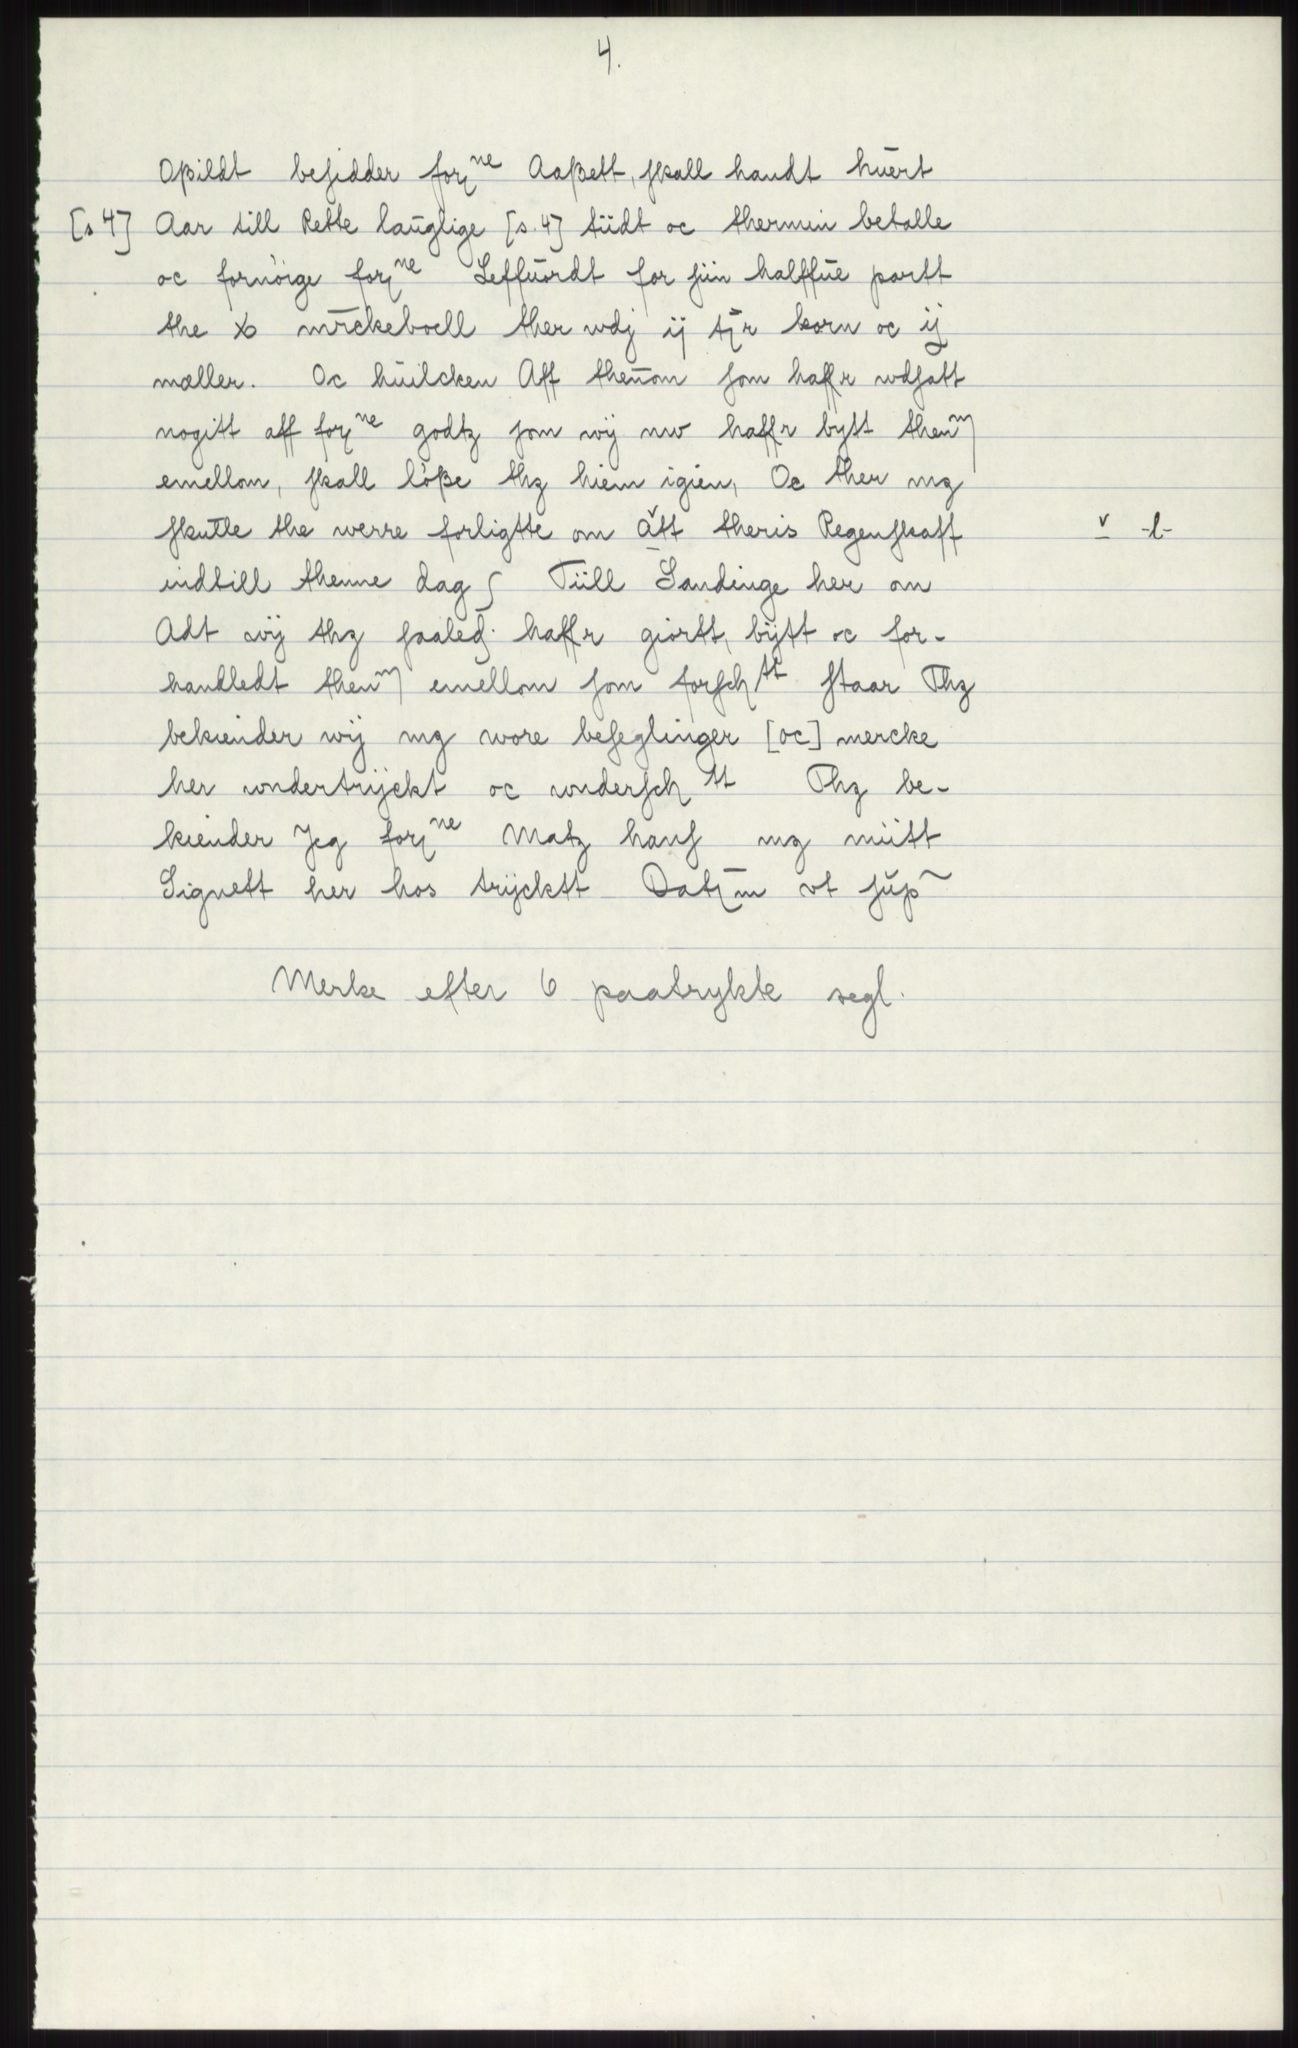 4.
Oßildt besidder for^ne Aaßett, skall handt huert
[s 4] Aar till Rette lauglige [s. 4] tiidt oc thermin betalle
oc fornöige for^ne Seffuordt for siin halffue partt
the x mrckeboell ther wdj ij tjr korn oc ij
mæller. Oc huilcken Aff thenom som haffr wdsatt
nogitt aff for^ne godtz som wij nw haffr bytt them
emellom, skall lößе thz hiem igien, Oc ther mz
skulle the werre forligtte om ått theris Regenskaff v -l-
indtill thenne dag Tiill Sandinge her om
Adt wij thz saaled haffr giortt, bijtt oc for-
handledt them emellom som forsch^tt staar Thz
bekiender wij mz wore beseglinger [oc] mercke
her wndertrijckt oc wndersch^tt Thz be-
kiender Jeg for^ne Matz hans mz miitt
Signett her hos trijcktt Datm vt sup
Merke efter 6 paatrykte segl.